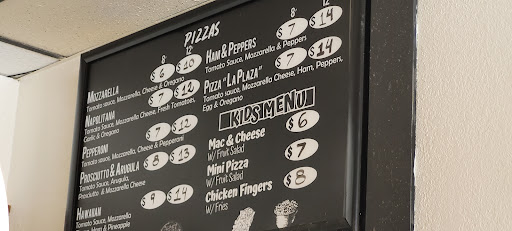 PIZZAS
8' 12'
MOZZARELLA $6 $10
Tomato sauce, Mozzarella, Cheese & Oregano
NAPOLITANA $7
Tomato Sauce, Mozzarella, Cheese, Fresh Tomatoes,
Garlic & Oregano
PEPPERONI $7 $12
Tomato sauce, Mozzarella, Cheese & Pepperoni
PROSCIUTTO & ARUGULA $8 $13
Tomato Sauce, Arugula,
Prosciutto & Mozzarella Cheese
HAWAIIAN $9 $14
Tomato Sauce, Mozzarella
Ham & Pineapple
8' 12'
HAM & PEPPERS $7 $14
Tomato Sauce, Mozzarella & Peppers
PIZZA "LA PLAZA" $7 $14
Tomato sauce, Mozzarella Cheese, Ham, Pepper,
Egg & Oregano
KIDS MENU
MAC & CHEESE $6
W/ Fruit Salad
MINI PIZZA $7
W/ Fruit Salad
CHICKEN FINGERS $8
W/ Fries